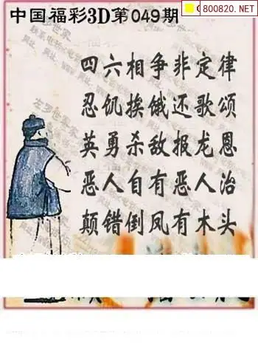 中国福彩3D第049期
800820.NET
四六相争非定律
忍饥挨饿还歌颂
英勇杀敌报龙恩
恶人自有恶人治
颠错倒凤有木头